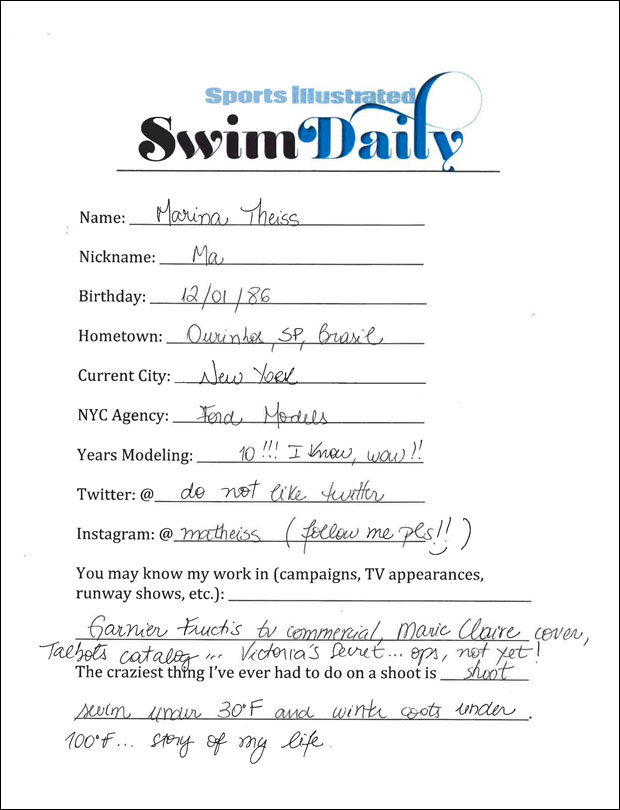 Sports Illustrated
Swim Daily
Name: Marina Theiss
Nickname: Ma
Birthday: 12/01/86
Hometown: Ourinhos, SP, Brasil
Current City: New York
NYC Agency: Ford Models
Years Modeling: 10!!! I know, wow!!
Twitter: @ do not like twitter
Instagram: @ matheiss (follow me pls!!)
You may know my work in (campaigns, TV appearances,
runway shows, etc.):
Garnier Fructis tv commercial, Marie Claire cover,
Talbots catalog... Victoria's Secret... ops, not yet!
The craziest thing I've ever had to do on a shoot is shoot
swim under 30°F and winter coats under.
100°F... story of my life.